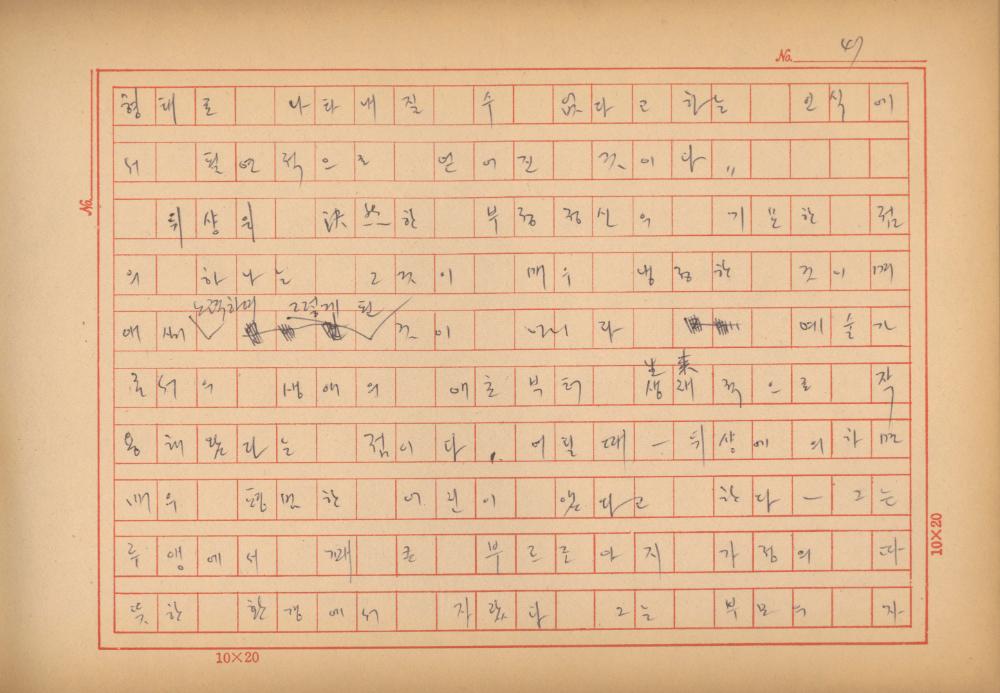 No. 47
형태로 나타내질 수 없다고 하는 인식에
서 필연적으로 얻어진 것이다"
뒤샹의 決然한 부정정신의 기묘한 점
의 하나는 그것이 매우 냉정한 것이며
노력하며 그렇게 된
애써 것이 아니라 예술가
로서의 생애의 애초부터 생래적으로 작
生來
용해 왔다는 점이다. 어릴때 — 뒤샹에 의하면
매우 평범한 어린이 였다고 한다 — 그는
루앙에서 꽤 큰 부르조아지 가정의 따
뜻한 환경에서 자랐다 그는 부모의 자
No.
10×20
10×20